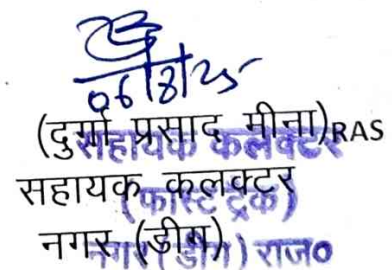 06/8/25
(दुर्गा प्रसाद मीना)RAS
सहायक कलक्टर
सहायक कलक्टर
(फास्ट ट्रेक)
नगर (डीग)
नगर (डीग) राज०